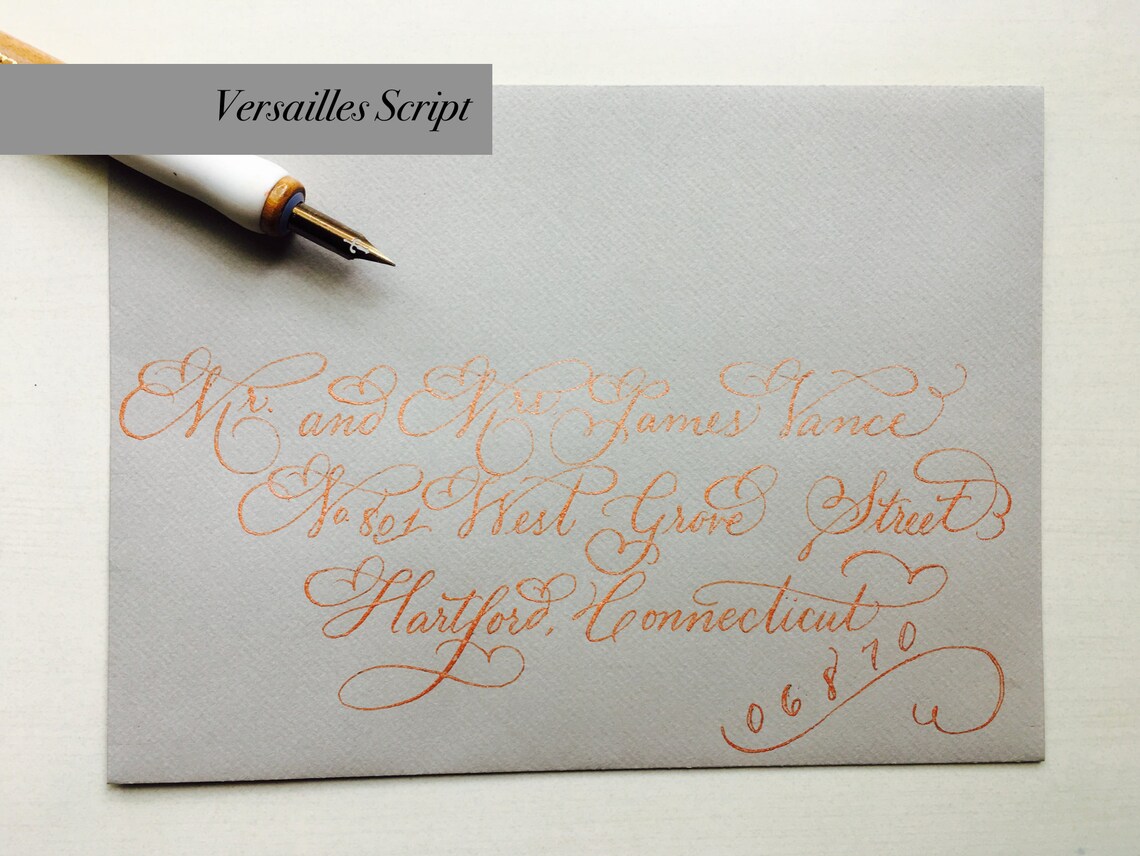 Versailles Script
Mr. and Mrs James Vance
No. 801 West Grove Street
Hartford, Connecticut
06870